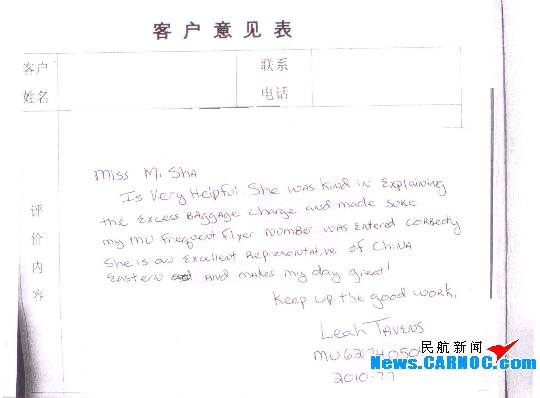 客户意见表
客户
姓名
联系
电话
评价内容
Miss M. Sha
Is Very Helpful. She was kind in explaining
the excess baggage charge and made sure
my MU Frequent Flyer number was entered correctly
She is an excellent representative of China
Eastern and makes my day great!
Keep up the good work,
Leah Tavens
MU6217405
2010.7.7
民航新闻
News.CARNOC.com